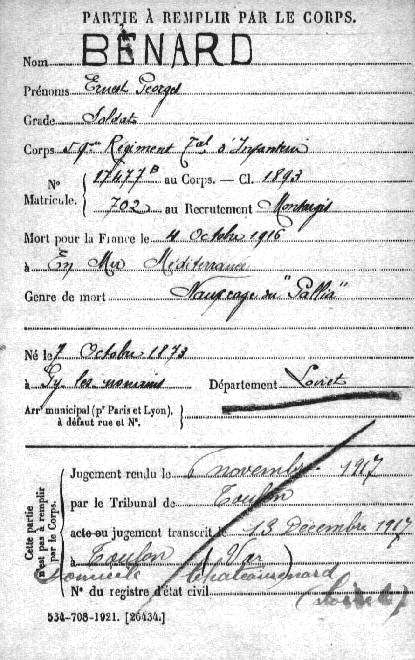 PARTIE À REMPLIR PAR LE CORPS.
Nom BÉNARD
Prénoms Ernest Georges
Grade Soldat
Corps 59me Régiment Tal d'Infanterie
N° Matricule. { 17477B au Corps. — Cl. 1893
702 au Recrutement Montargis
Mort pour la France le 4 Octobre 1916
à En Mer Méditerranée
Genre de mort Naufrage du "Gallia"
Né le 7 Octobre 1873
à Gy les nonains Département Loiret
Arrt municipal (pr Paris et Lyon), à défaut rue et N°.
Cette partie n'est pas à remplir par le Corps.
Jugement rendu le 6 novembre 1917
par le Tribunal de Toulon
acte ou jugement transcrit le 13 Décembre 1917
à Toulon (Var)
Domicile Chateaurenard
N° du registre d'état civil (Loiret)
534-708-1921. [26434.]